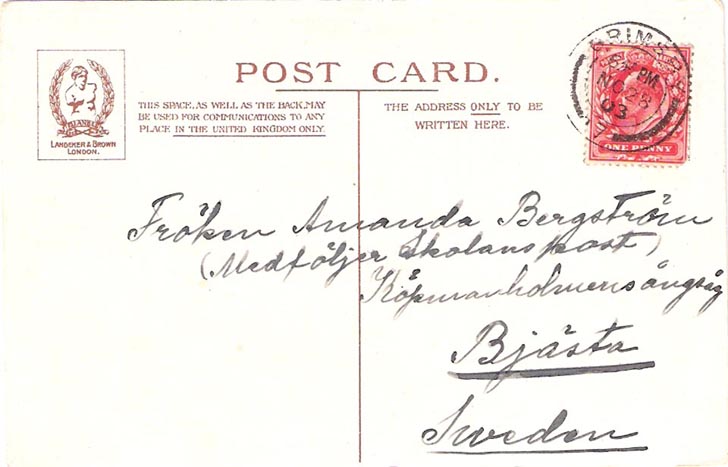 POST CARD.
THIS SPACE, AS WELL AS THE BACK, MAY
BE USED FOR COMMUNICATIONS TO ANY
PLACE IN THE UNITED KINGDOM ONLY.
THE ADDRESS ONLY TO BE
WRITTEN HERE.
LANDEKER & BROWN
LONDON.
PM
NO 28
03
ONE PENNY
Fröken Amanda Bergström
(Medföljer Skolans post)
Köpmanholmens ångsåg
Bjästa
Sweden